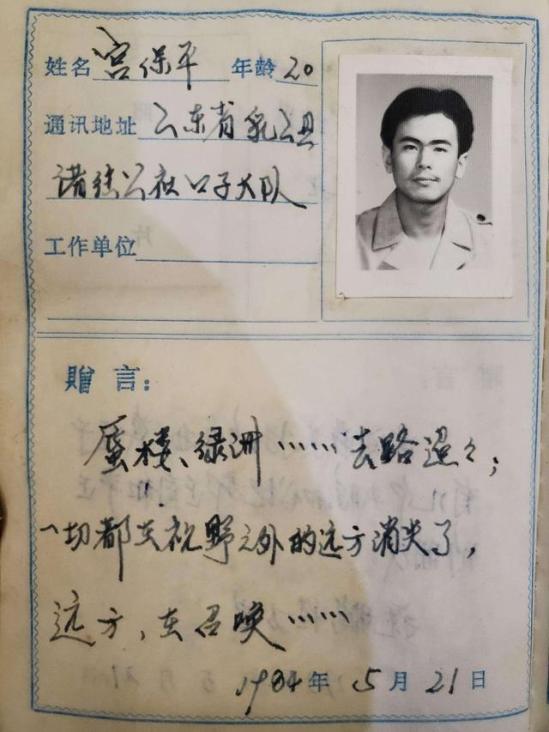 姓名 宫保平 年龄 20
通讯地址 山东省乳山县
诸往公社口子大队
工作单位
赠言：
蜃楼、绿洲……去路迢々；
一切都在视野之外的远方消失了，
远方，在召唤……
1984年5月21日